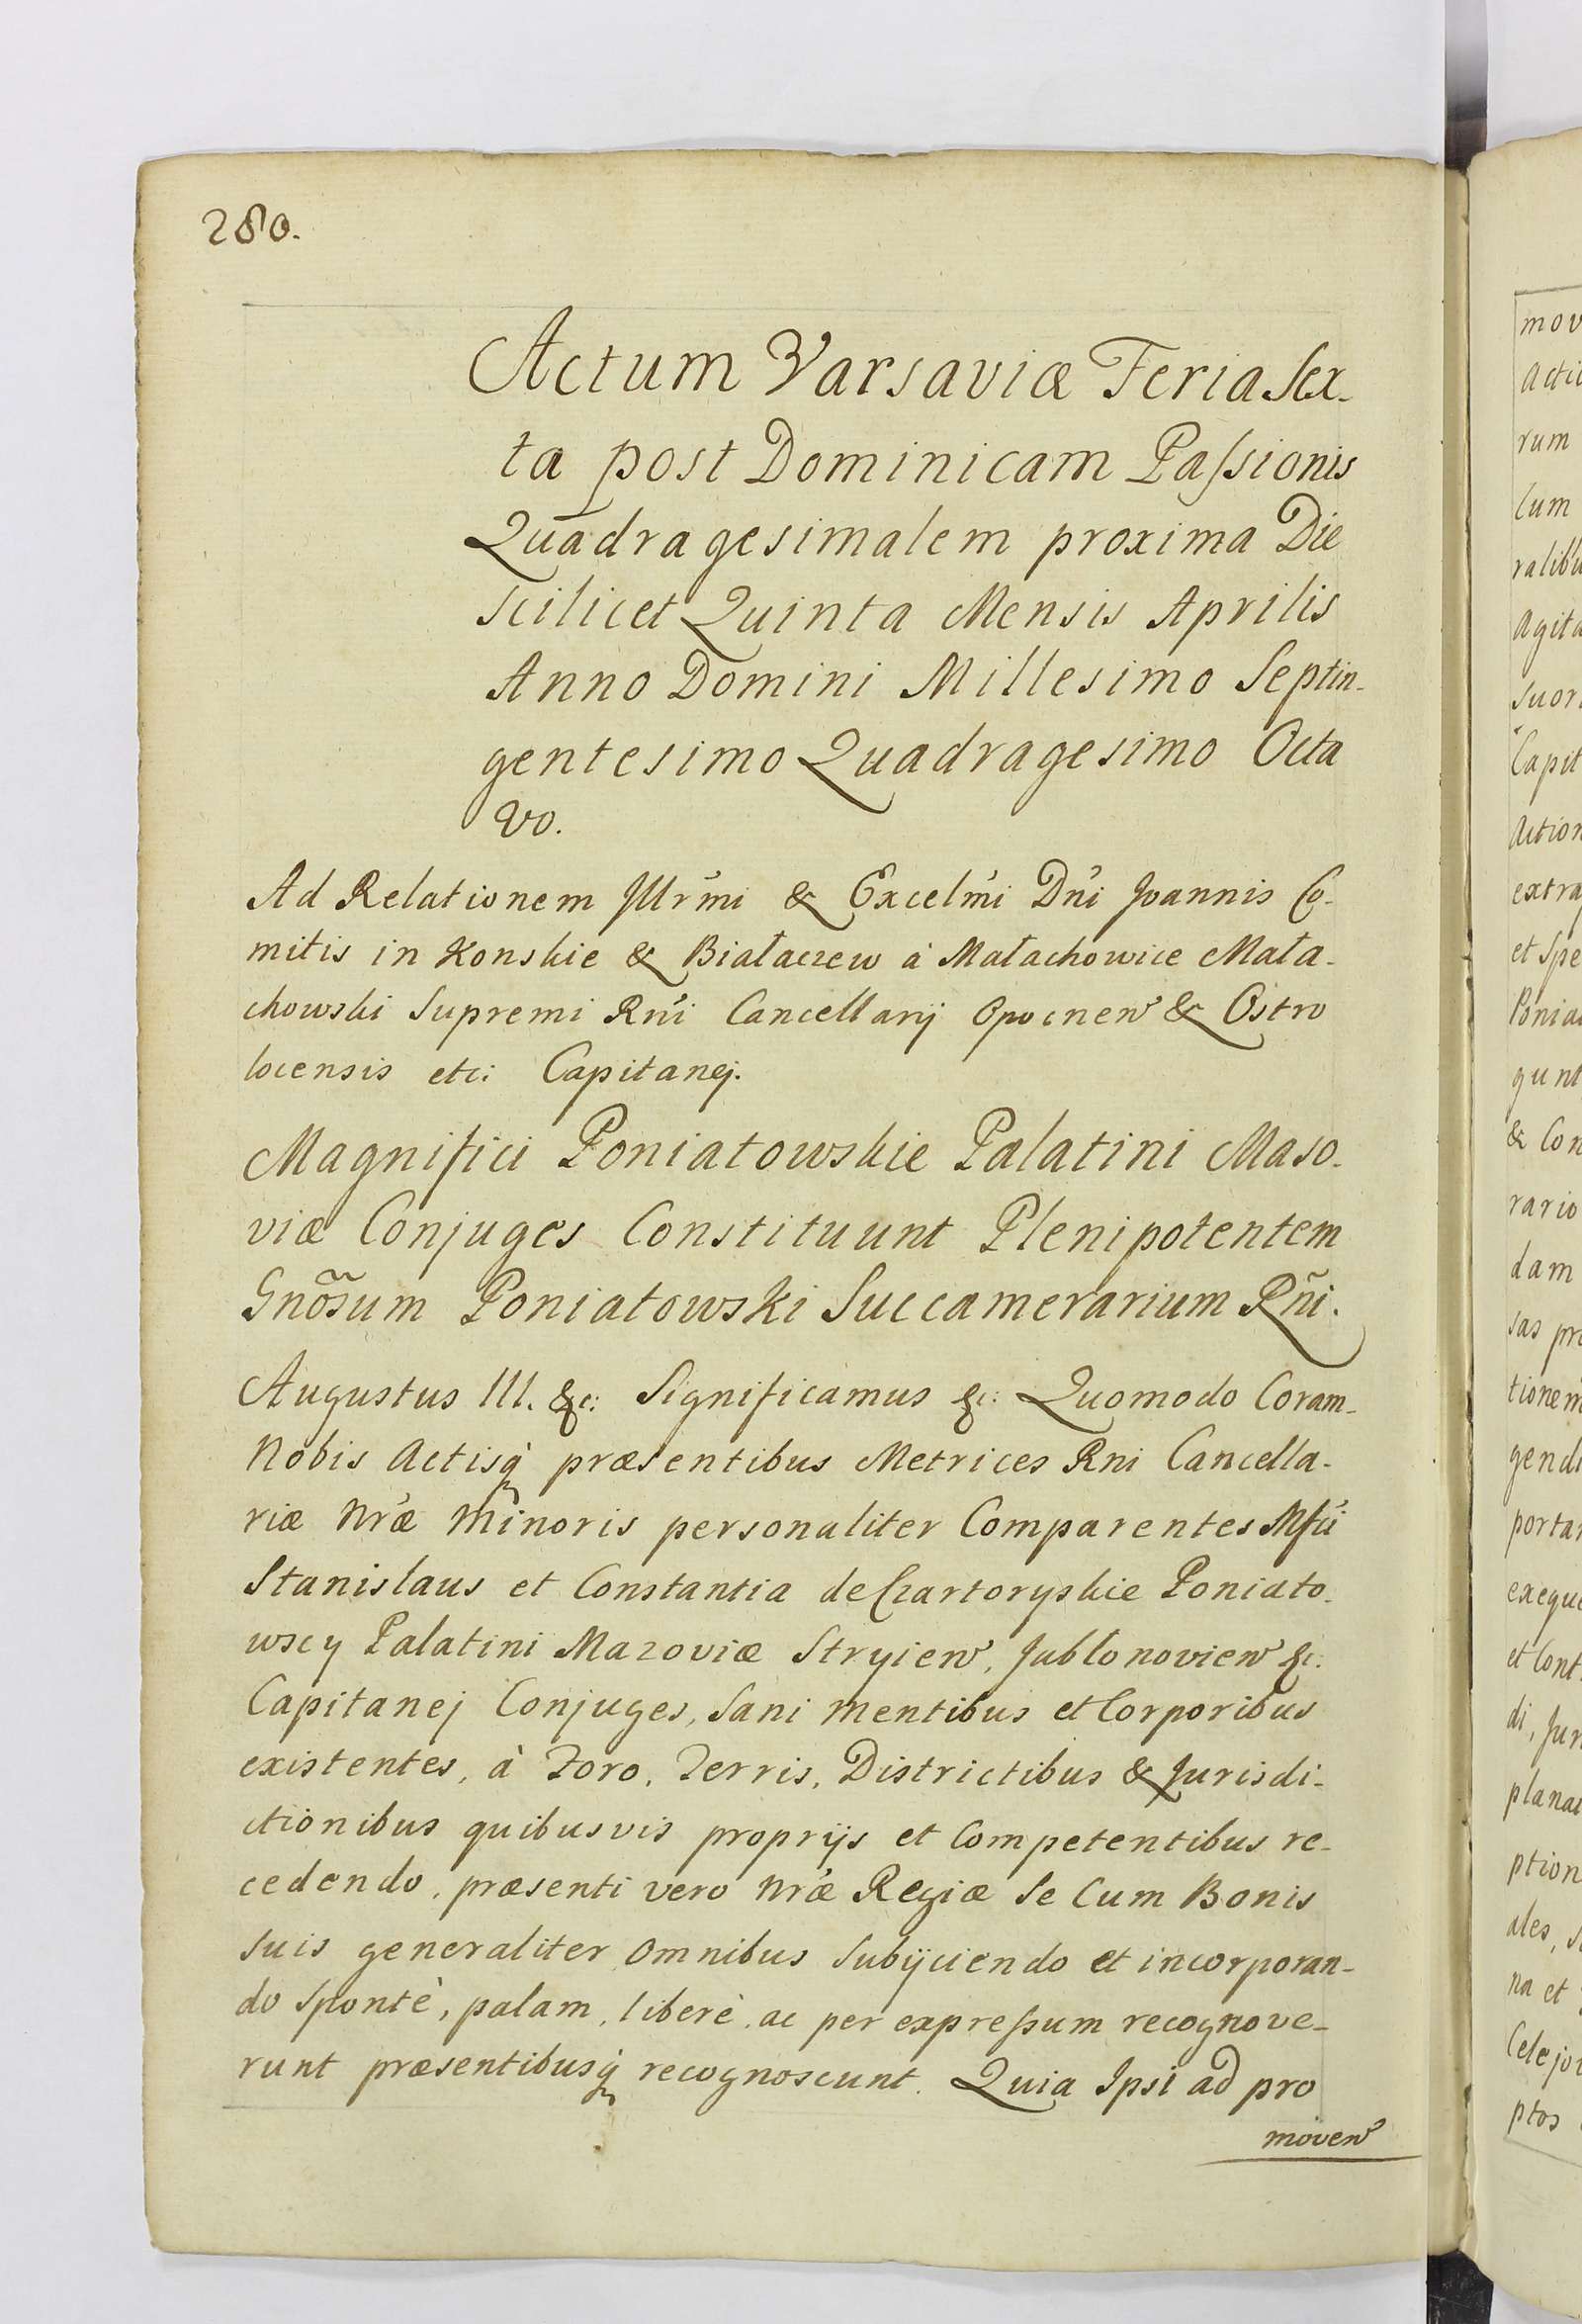 280.
Actum Varsaviæ Feria Sex-
ta post Dominicam Paſsionis
Quadragesimalem proxima Die
scilicet Quinta Mensis Aprilis
Anno Domini Millesimo Septin-
gentesimo Quadragesimo Octa
vo.
Ad Relationem Jllrm̃i & Excelm̃i Dñi Joannis Co-
mitis in Konskie & Białaczew à Małachowice Mała-
chowski Supremi Rñi Cancellarij Opocnen̄ & Ostro
locensis etc: Capitanej.
Magnifici Poniatowskie Palatini Maso-
viæ Conjuges Constituunt Plenipotentem
Gnõsum Poniatowski Succamerarium Rñi.
Augustus III. &c: Significamus &c: Quomodo Coram-
Nobis Actisq̀ præsentibus Metrices Rni Cancella-
riæ Nr̃æ Minoris personaliter Comparentes Mfici
Stanislaus et Constantia de Czartoryskie Poniato-
wscy Palatini Mazoviæ Stryien̄, Jablonovien̄ &c.
Capitanej Conjuges, Sani Mentibus et Corporibus
existentes, à Foro, Terris, Districtibus & Jurisdi-
ctionibus quibusvis proprijs et Competentibus re-
cedendo, præsenti vero Nr̃æ Regiæ Se Cum Bonis
suis generaliter Omnibus Subijciendo et incorporan-
do Spontè, palam, liberè, ac per expreſsum recognove-
runt præsentibusq̀ recognoscunt. Quia Ipsi ad pro
moven̄
mov
Actio
rum
Cum
ralibu
Agita
suor
Capit
Action
extra
et Spe
Ponia
gunt
& Con
rario
dam
sas pr
tionem
gendi
portar
exeque
et Cont
di, Jur
planar
ption
ales, s
na et
Celejo
ptos